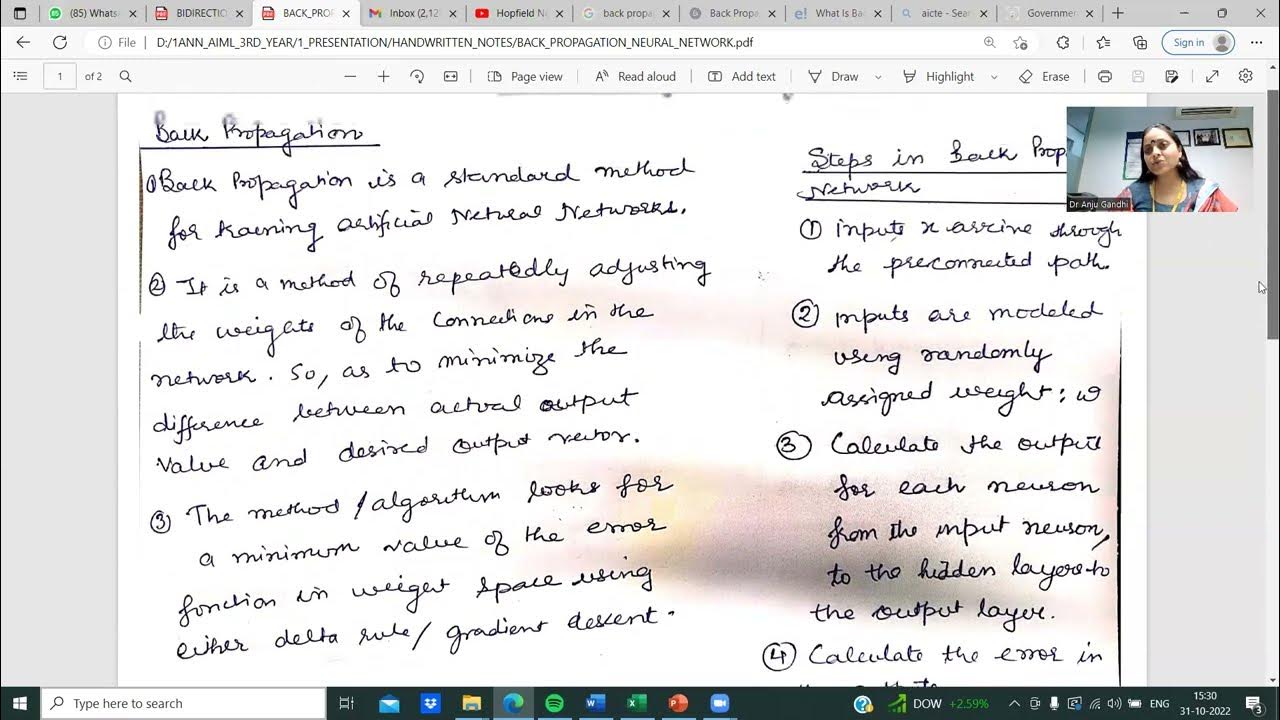 (85) Whats
BIDIRECTIO
BACK_PROP
Inbox (2,12
Hopfield N
back propa
Back Propa
What Is B
aicte - Sea
Governmen
File
D:/1ANN_AIML_3RD_YEAR/1_PRESENTATION/HANDWRITTEN_NOTES/BACK_PROPAGATION_NEURAL_NETWORK.pdf
Sign in
1 of 2
Page view
Read aloud
Add text
Draw
Highlight
Erase
Back Propagation
① Back Propagation is a standard method
for traening artificial Netural Networks.
② It is a method of repeatedly adjusting
the weights of the connections in the
network. So, as to minimize the
difference between actual output
value and desired output vector.
③ The method/algorithm looks for
a minimum value of the error
fonction in weight space using
either delta rule/gradient descent.
Steps in Back Prop
Network
① inputs x arrive through
the preconnected path.
② inputs are modeled
using randomly
assigned weight; w
③ Calculate the output
for each neuron
from the input neuron,
to the hidden layer to
the output layer.
④ Calculate the error in
Dr Anju Gandhi
Type here to search
DOW +2.59%
ENG
15:30
31-10-2022
3